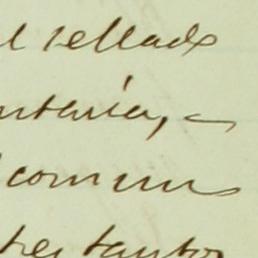 l sellado
ntaria, -
comun
tres tantos